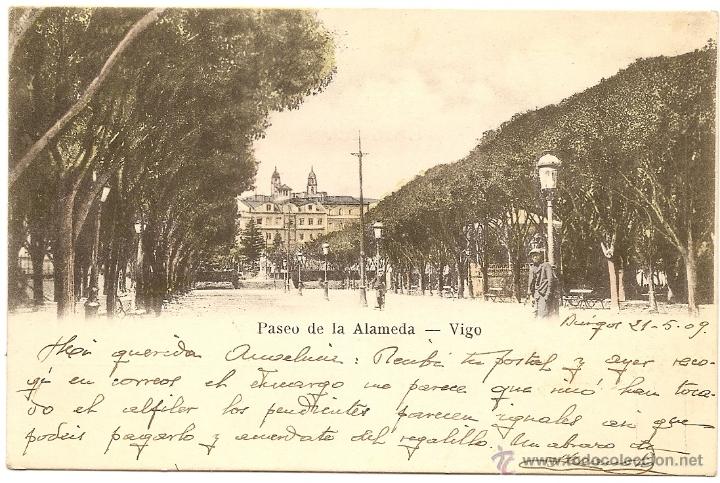 Paseo de la Alameda — Vigo
Burgos 21-5-09.
Mi querida Anselmi: Recibí tu postal y ayer reco-
gí en correos el encargo me parece que no han toca-
do el alfiler los pendientes parecen iguales asi que
podeis pagarlo y acuerdate del regalillo. Un abrazo de
www.todocoleccion.net